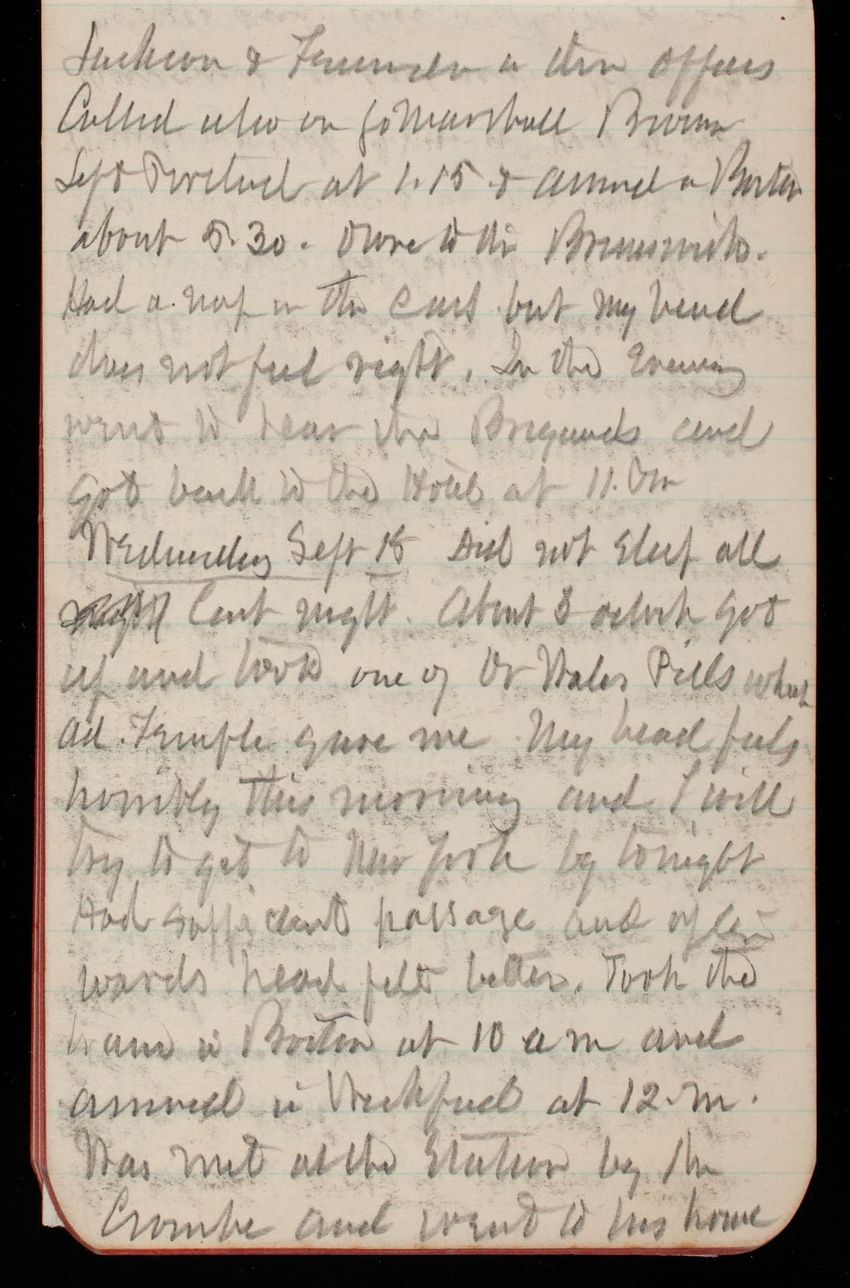 Jackson & Freeman in their offices
Called also on Marshall Brown
Left Portland at 1.15 & arrived in Boston
about 5.30. Drove to the Brunswick.
Had a nap in the cars but my head
does not feel right. In the Evening
went to hear the Brigands and
got back to the Hotel at 11. Pm
Wednesday Sept 15 Did not Sleep all
right last night. About 3 oclock got
up and took one of Dr Hales Pills which
Ad. Temple gave me My head feels
horribly this morning and I will
try to get to New York by tonight
Had sufficient passage and after
wards head felt better. Took the
train in Boston at 10 a m and
arrived in at 12. M.
Was met at the Station by Mr
Crombe and went to his home